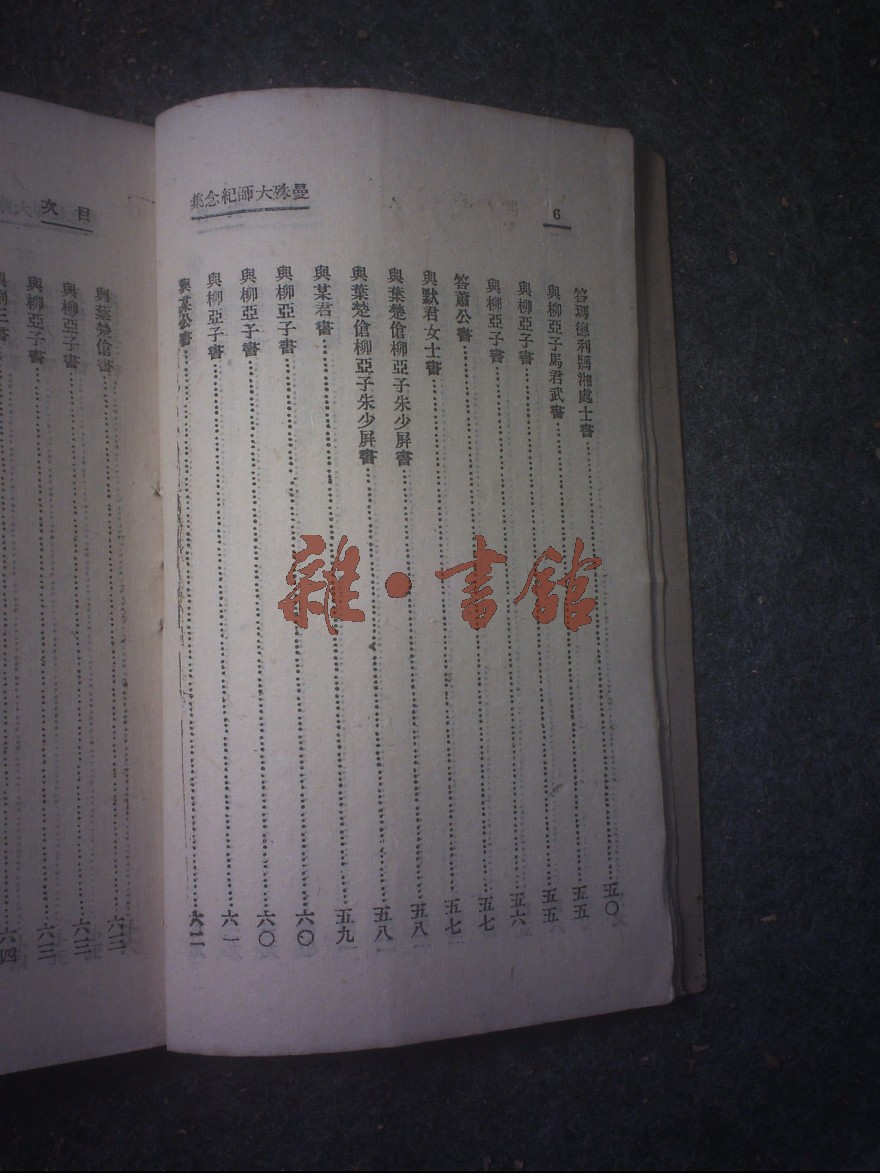 6
曼殊大師紀念集
答瑪德利莊湘處士書……五〇
與柳亞子馬君武書……五五
與柳亞子書……五五
與柳亞子書……五六
答蕭公書……五七
與默君女士書……五七
與葉楚傖柳亞子朱少屏書……五八
與葉楚傖柳亞子朱少屏書……五八
與某君書……五九
與柳亞子書……六〇
與柳亞子書……六〇
與柳亞子書……六一
與某公書……六二
目次
與葉楚傖書……六二
與柳亞子書……六三
與柳亞子書……六三
與劉三書……六四
雜·書館